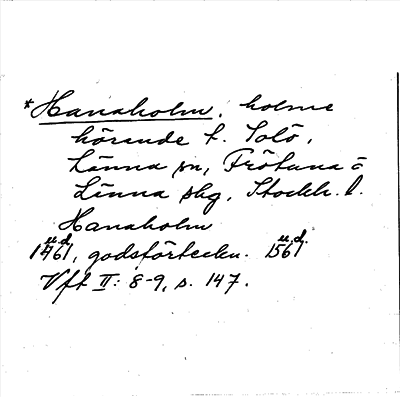 *Hanaholm, holme
hörande t. Solö,
Länna sn, Frötuna o
Länna skg, Stockh. l.
Hanaholm
u.d. u.d.
1461, godsförteckn. 1561
Vft II: 8-9, s. 147.